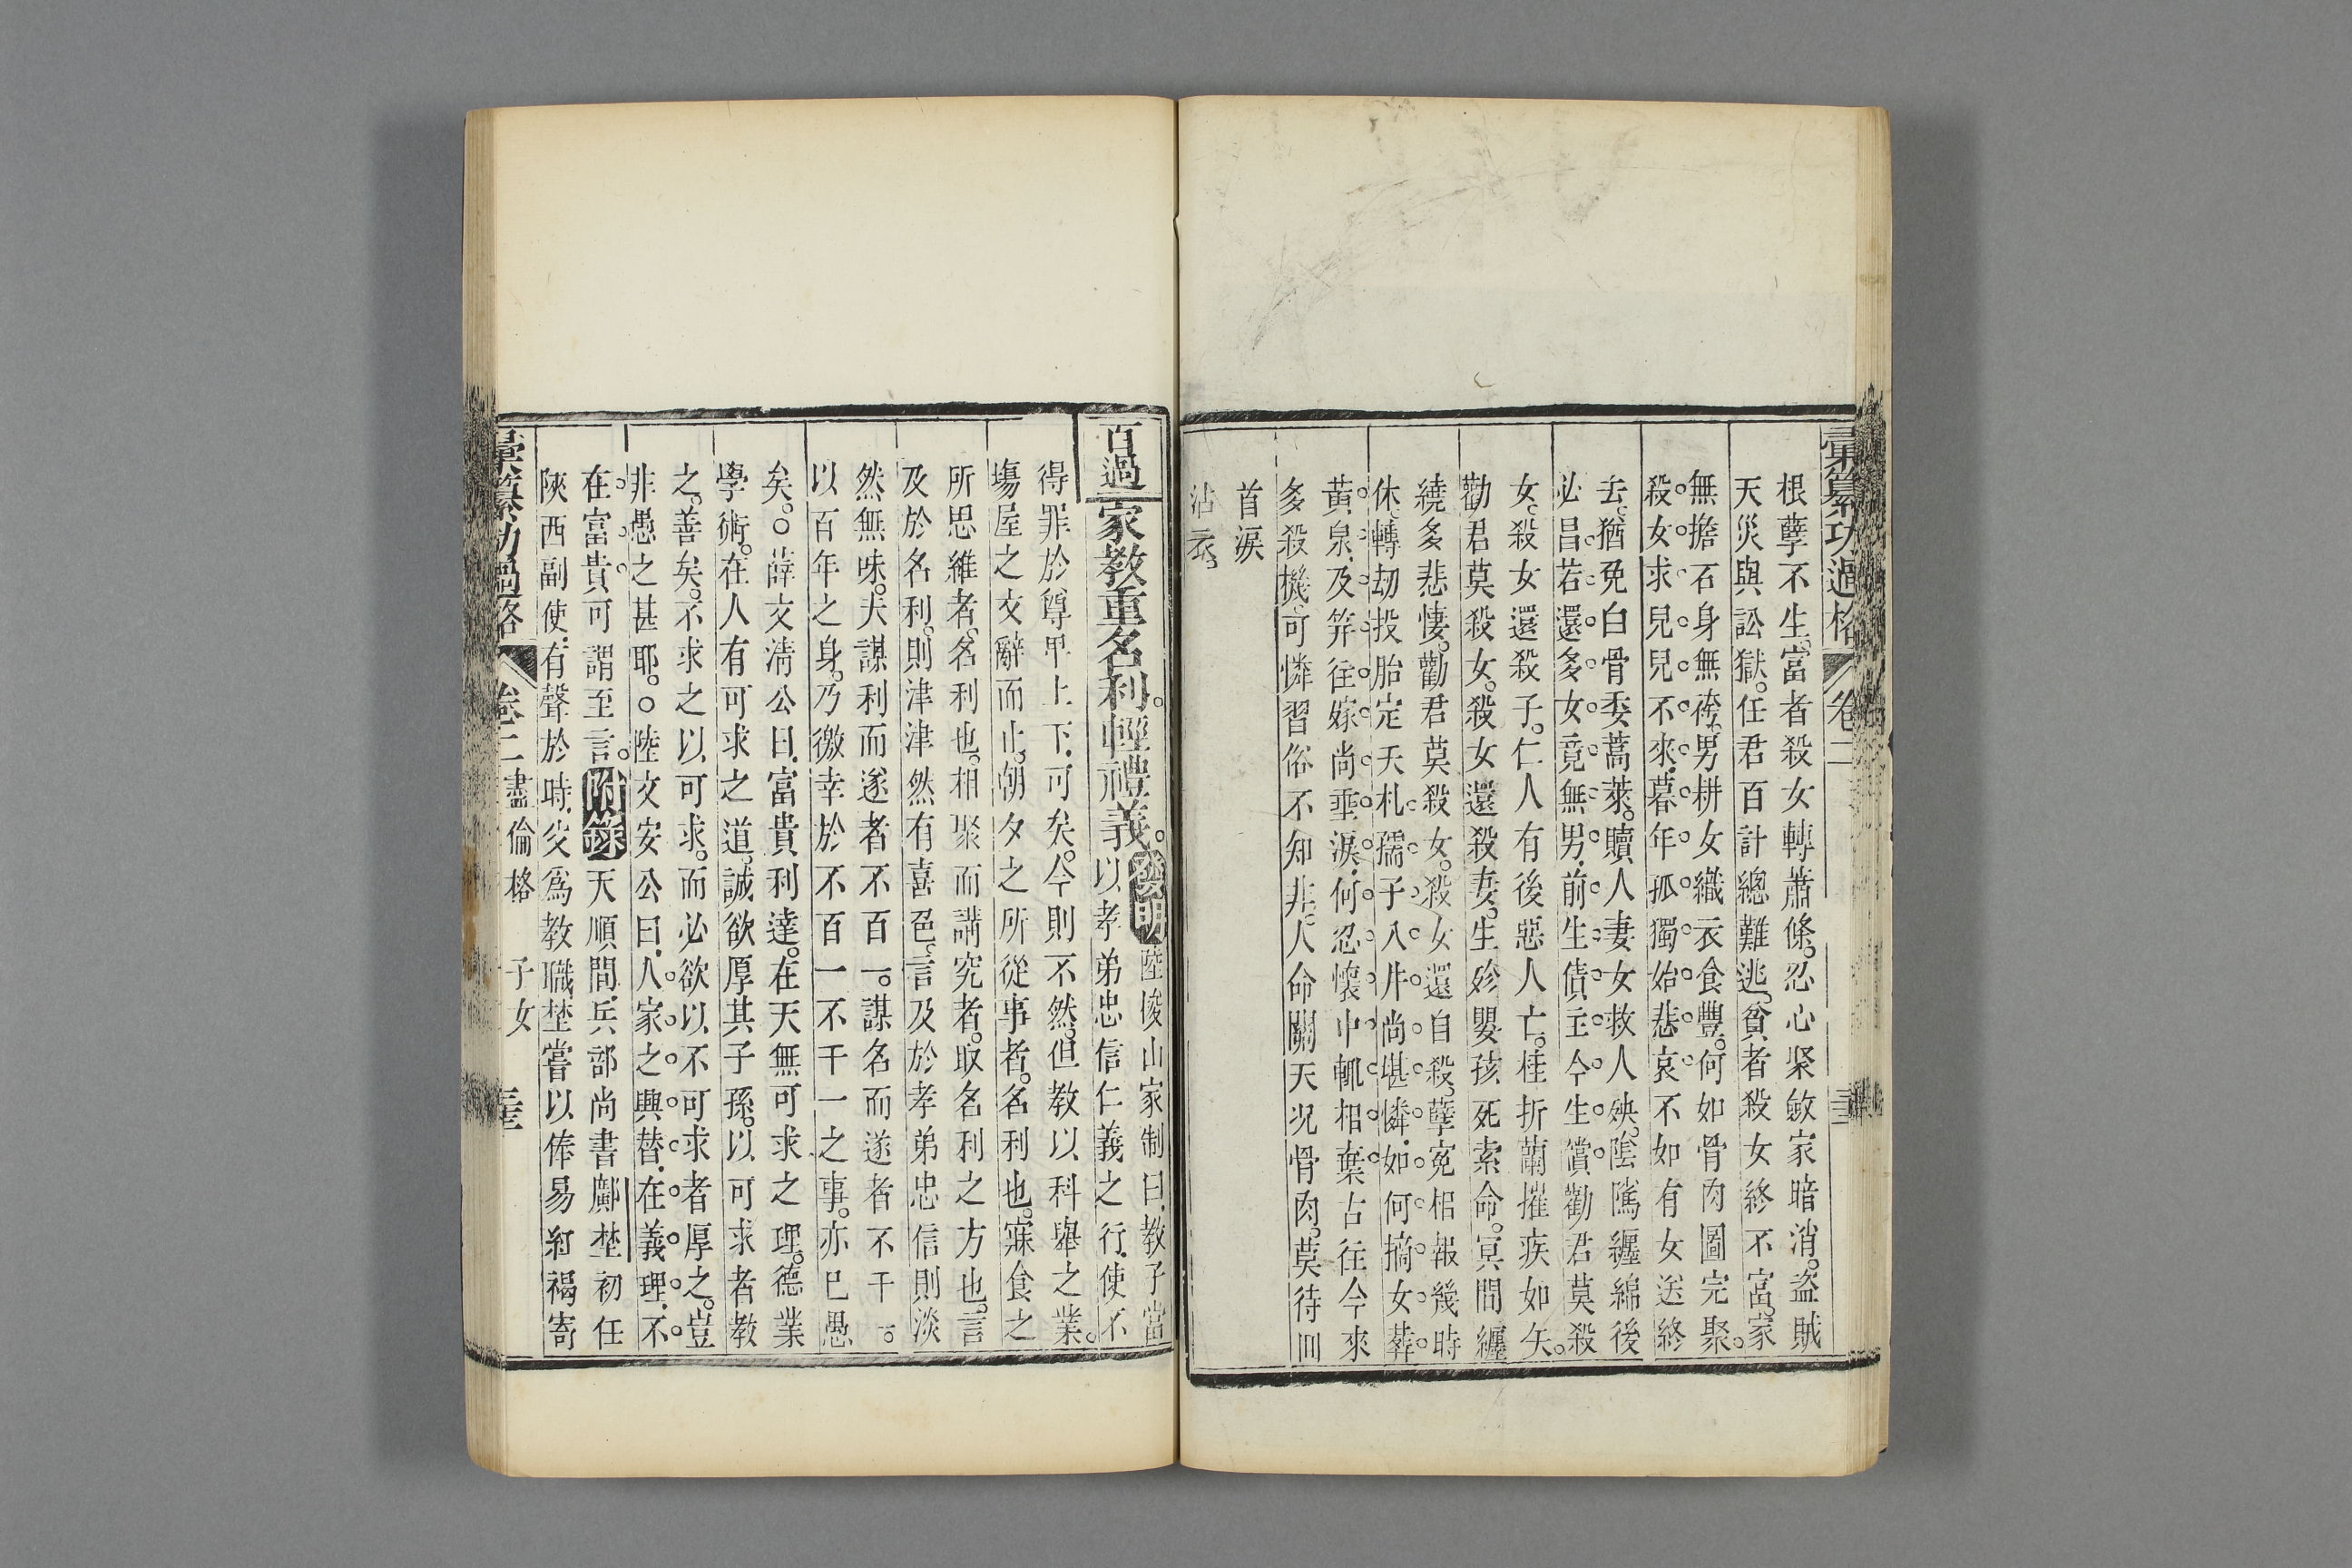 彙纂功過格 卷二
根孽不生。富者殺女轉蕭條。忍心聚斂家暗消。盜賊
天災與訟獄。任君百計總難逃。貧者殺女終不富。家
無擔石身無袴。男耕女織衣食豐。何如骨肉圖完聚。
殺女求兒兒不來。暮年孤獨始悲哀。不如有女送終
去。猶免白骨委蒿萊。贖人妻女救人殃。陰騭纏綿後
必昌。若還多女竟無男。前生債主今生償。勸君莫殺
女。殺女還殺子。仁人有後惡人亡。桂折蘭摧疾如矢。
勸君莫殺女。殺女還殺妻。生殄嬰孩死索命。冥間纏
繞多悲悽。勸君莫殺女。殺女還自殺。孽冤相報幾時
休。轉劫投胎定夭札。孺子入井尚堪憐。如何摘女葬
黃泉。及笄往嫁尚垂淚。何忍懷中輒相棄。古往今來
多殺機。可憐習俗不知非。人命關天况骨肉。莫待回
首淚
沾衣。
百過 家教重名利。輕禮義。發明陸梭山家制曰。教子當
以孝弟忠信仁義之行。使不
得罪於尊卑上下。可矣。今則不然。但教以科舉之業。
塲屋之文辭而止。朝夕之所從事者。名利也。寐食之
所思維者。名利也。相聚而講究者。取名利之方也。言
及於名利。則津津然有喜色。言及於孝弟忠信則淡
然無味。夫謀利而遂者不百一。謀名而遂者不千一。
以百年之身。乃徼幸於不百一不千一之事。亦已愚
矣。○薛文清公曰。富貴利達。在天無可求之理。德業
學術。在人有可求之道。誠欲厚其子孫。以可求者教
之。善矣。不求之以可求。而必欲以不可求者厚之。豈
非愚之甚耶。○陸文安公曰。人家之興替。在義理。不
在富貴。可謂至言。附錄天順間。兵部尚書鄺埜初任
陝西副使。有聲於時。父爲教職。埜嘗以俸易紅褐寄
彙纂功過格 卷二 盡倫格 子女